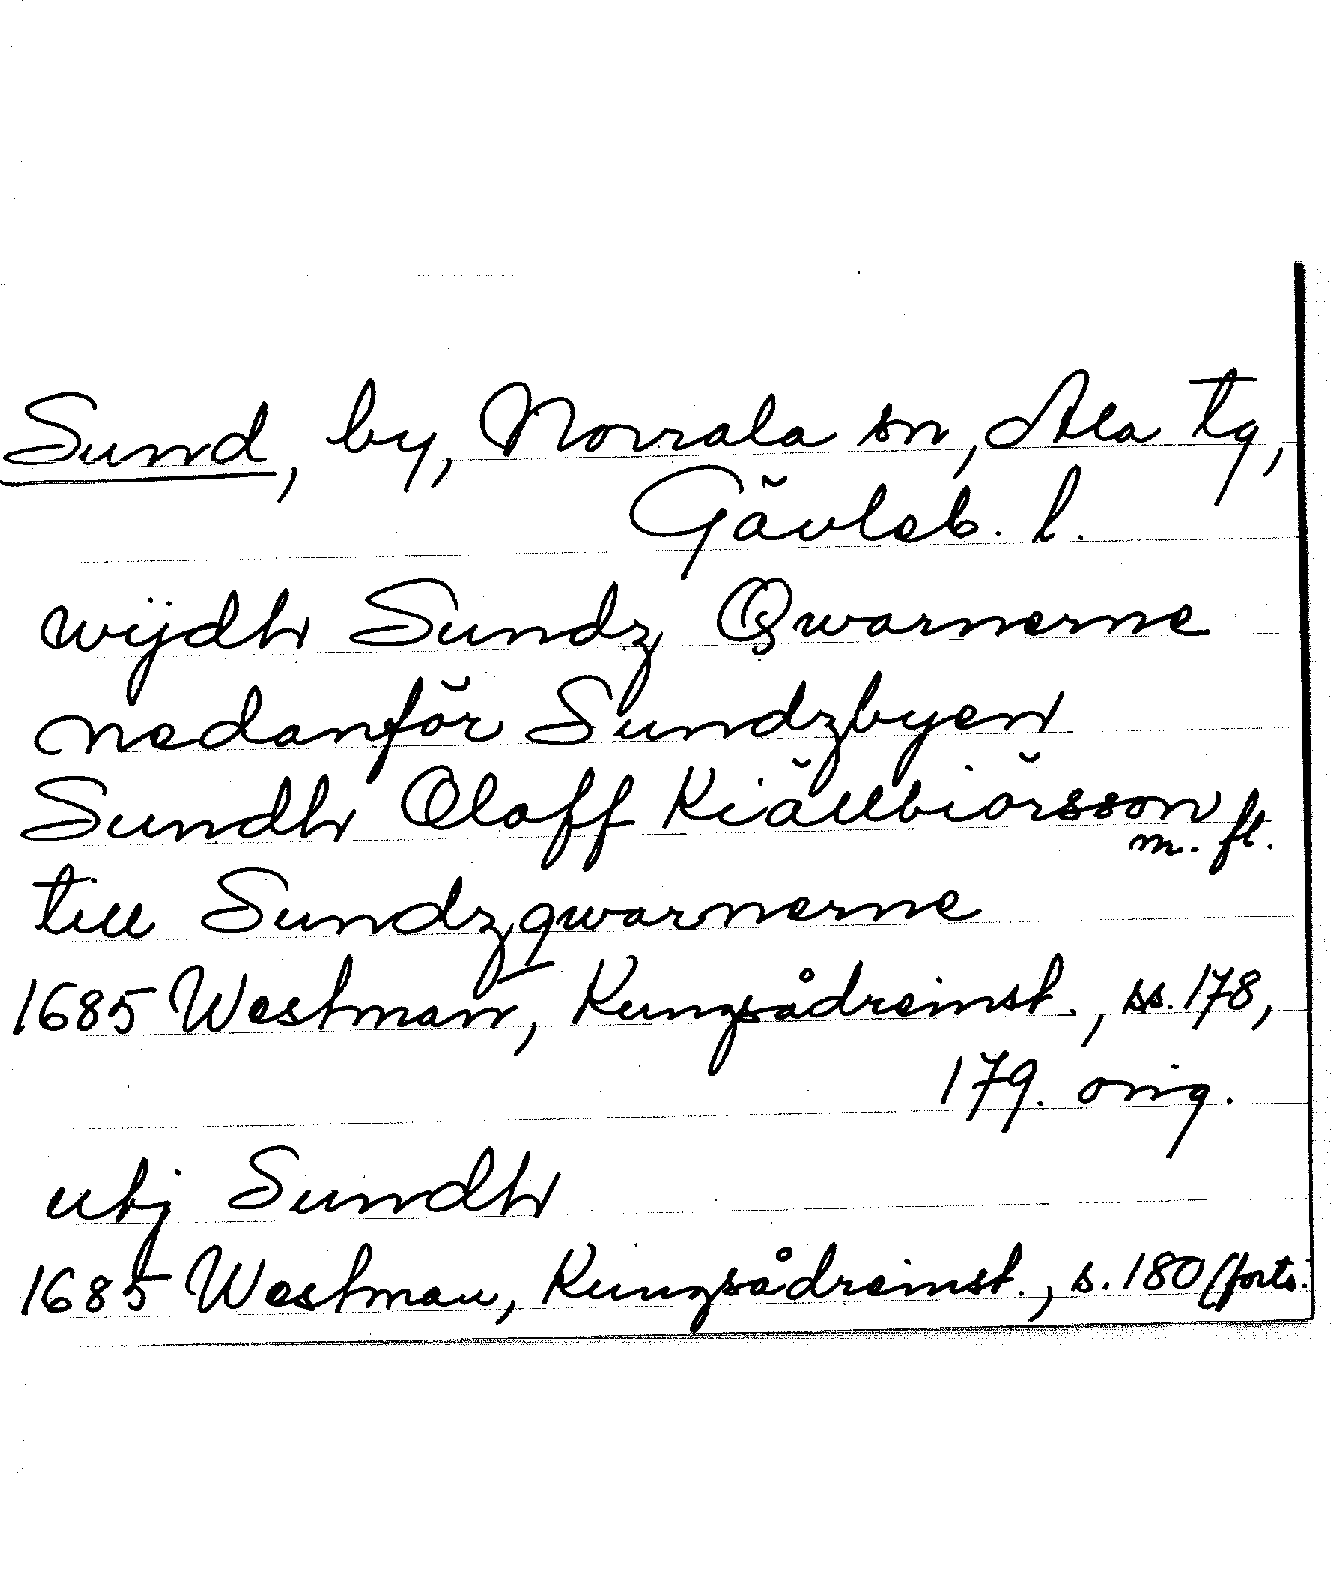 Sund, by, Norrala sn, Ala tg,
Gävleb. l.
wijdh Sundz Qwarnerne
nedanför Sundzbyen
Sundh Oloff Kiällbiörsson
m. fl.
till Sundzqwarnerne
1685 Westman, Kungsådreinst., ss. 178,
179. orig.
utj Sundh
1685 Westman, Kungsådreinst., s. 180 (forts.